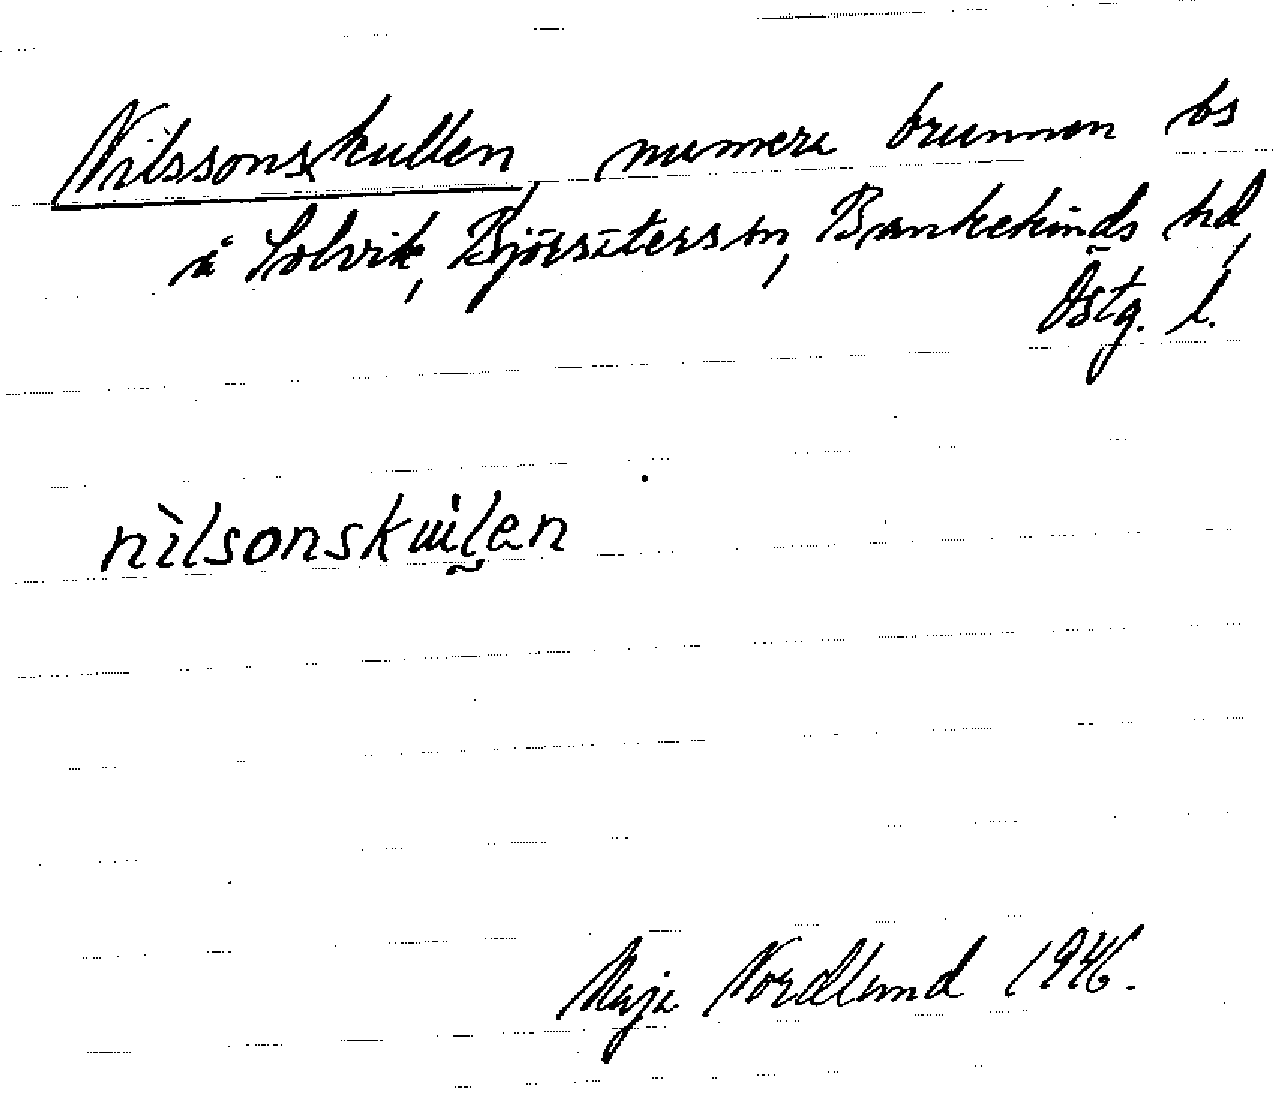 Nilssonskullen numera brunnen bs
å Solvik, Björsäters sn, Bankekinds hd,
Östg. l.
nilsonskulen
Maja Nordlund 1946.